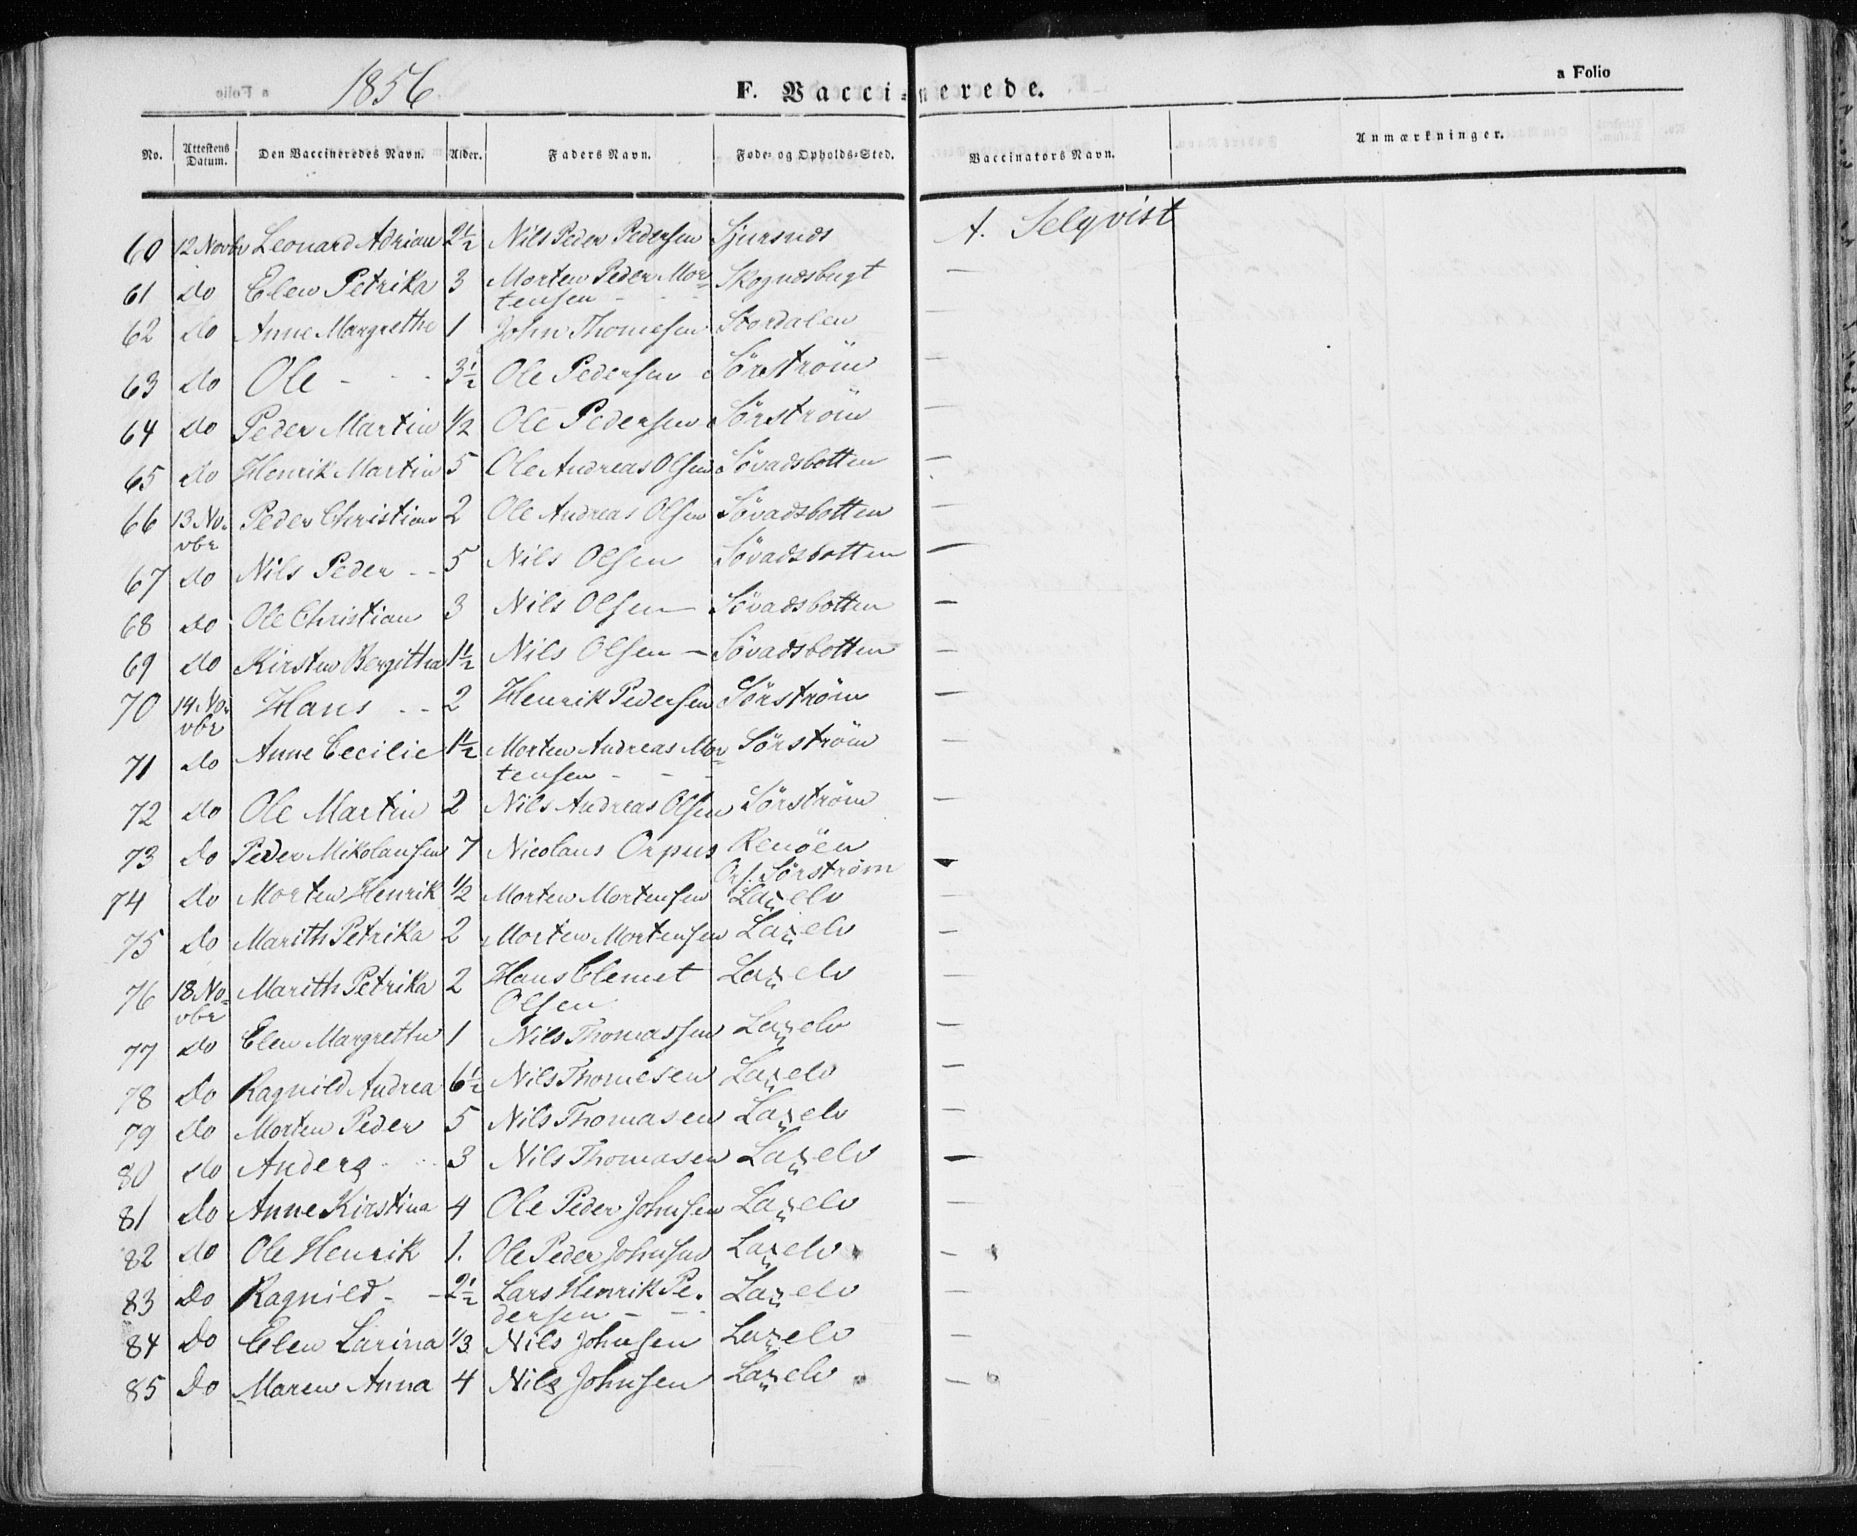 1856
F. Vaccinerede.
a Folio
No. Attestens Datum. Den Vaccineredes Navn. Alder. Faders Navn. Føde- og Opholds-Sted. Vaccinators Navn. Anmærkninger.
60 12 Novbr Leonard Adrian 2½ Nils Peder Pedersen Sjursnds A. Selqvist
61 do Elen Petrika 3 Morten Peder Mor- Skogndsbugt —
tensen - -
62 do Anne Margrethe 1 John Thomesen Stordalen —
63 do Ole - - - 3½ Ole Pedersen Sørström —
64 do Peder Martin ½ Ole Pedersen Sørström —
65 do Henrik Martin 5 Ole Andreas Olsen Sövadsbotten —
66 13 No- Peder Christian 2 Ole Andreas Olsen Sövadsbotten —
vbr
67 do Nils Peder - - 5 Nils Olsen Sövadsbotten —
68 do Ole Christian 3 Nils Olsen — Sövadsbotten —
69 do Kirsten Bergitha 1½ Nils Olsen — Sövadsbotten —
70 14 No- Hans - - 2 Henrik Pedersen Sørström —
vbr
71 do Anne Cecilie 1½ Morten Andreas Mor- Sørström —
tensen - - -
72 do Ole Martin 2 Nils Andreas Olsen Sørström —
73 do Peder Nikolausen 7 Nicolaus Orpus Renöen —
Sørström
74 do Morten Henrik ½ Morten Mortensen Laxelv —
75 do Marith Petrika 2 Morten Mortensen Laxelv —
76 18 No- Marith Petrika 2 Hans Clemet Laxelv —
vbr Olsen
77 do Elen Margrethe 1 Nils Thomassen Laxelv —
78 do Ragnild Andrea 6½ Nils Thomesen Laxelv —
79 do Morten Peder 5 Nils Thomasen Laxelv —
80 do Anders - - 3 Nils Thomasen Laxelv —
81 do Anne Kirstina 4 Ole Peder Johnsen Laxelv —
82 do Ole Henrik 1. Ole Peder Johnsen Laxelv —
83 do Ragnild - - 2½ Lars Henrik Pe- Laxelv —
dersen - -
84 do Elen Larina ⅓ Nils Johnsen Laxelv —
85 do Maren Anna 4 Nils Johnsen Laxelv —